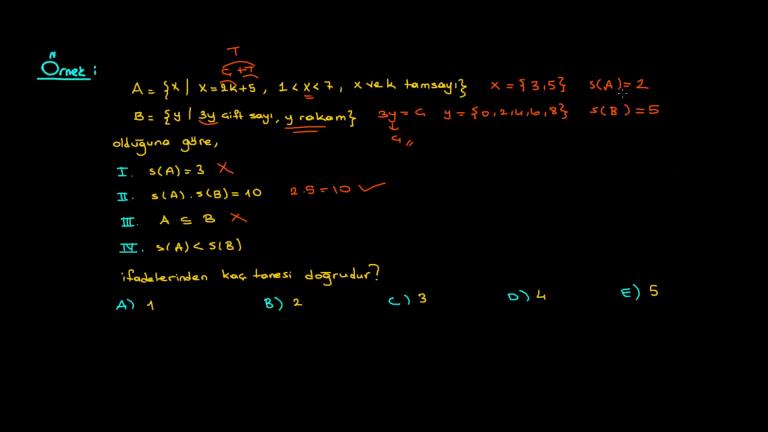 Örnek:
T
Ç+T
A = {x | x=2k+5, 1<x<7, x ve k tamsayı} x = {3,5} s(A)=2
B = {y | 3y çift sayı, y rakam} 3y = Ç y = {0,2,4,6,8} s(B)=5
Ç
olduğuna göre,
I. s(A)=3 X
II. s(A).s(B)=10 2.5=10 ✓
III. A ⊆ B X
IV. s(A)<s(B)
ifadelerinden kaç tanesi doğrudur?
A) 1 B) 2 C) 3 D) 4 E) 5